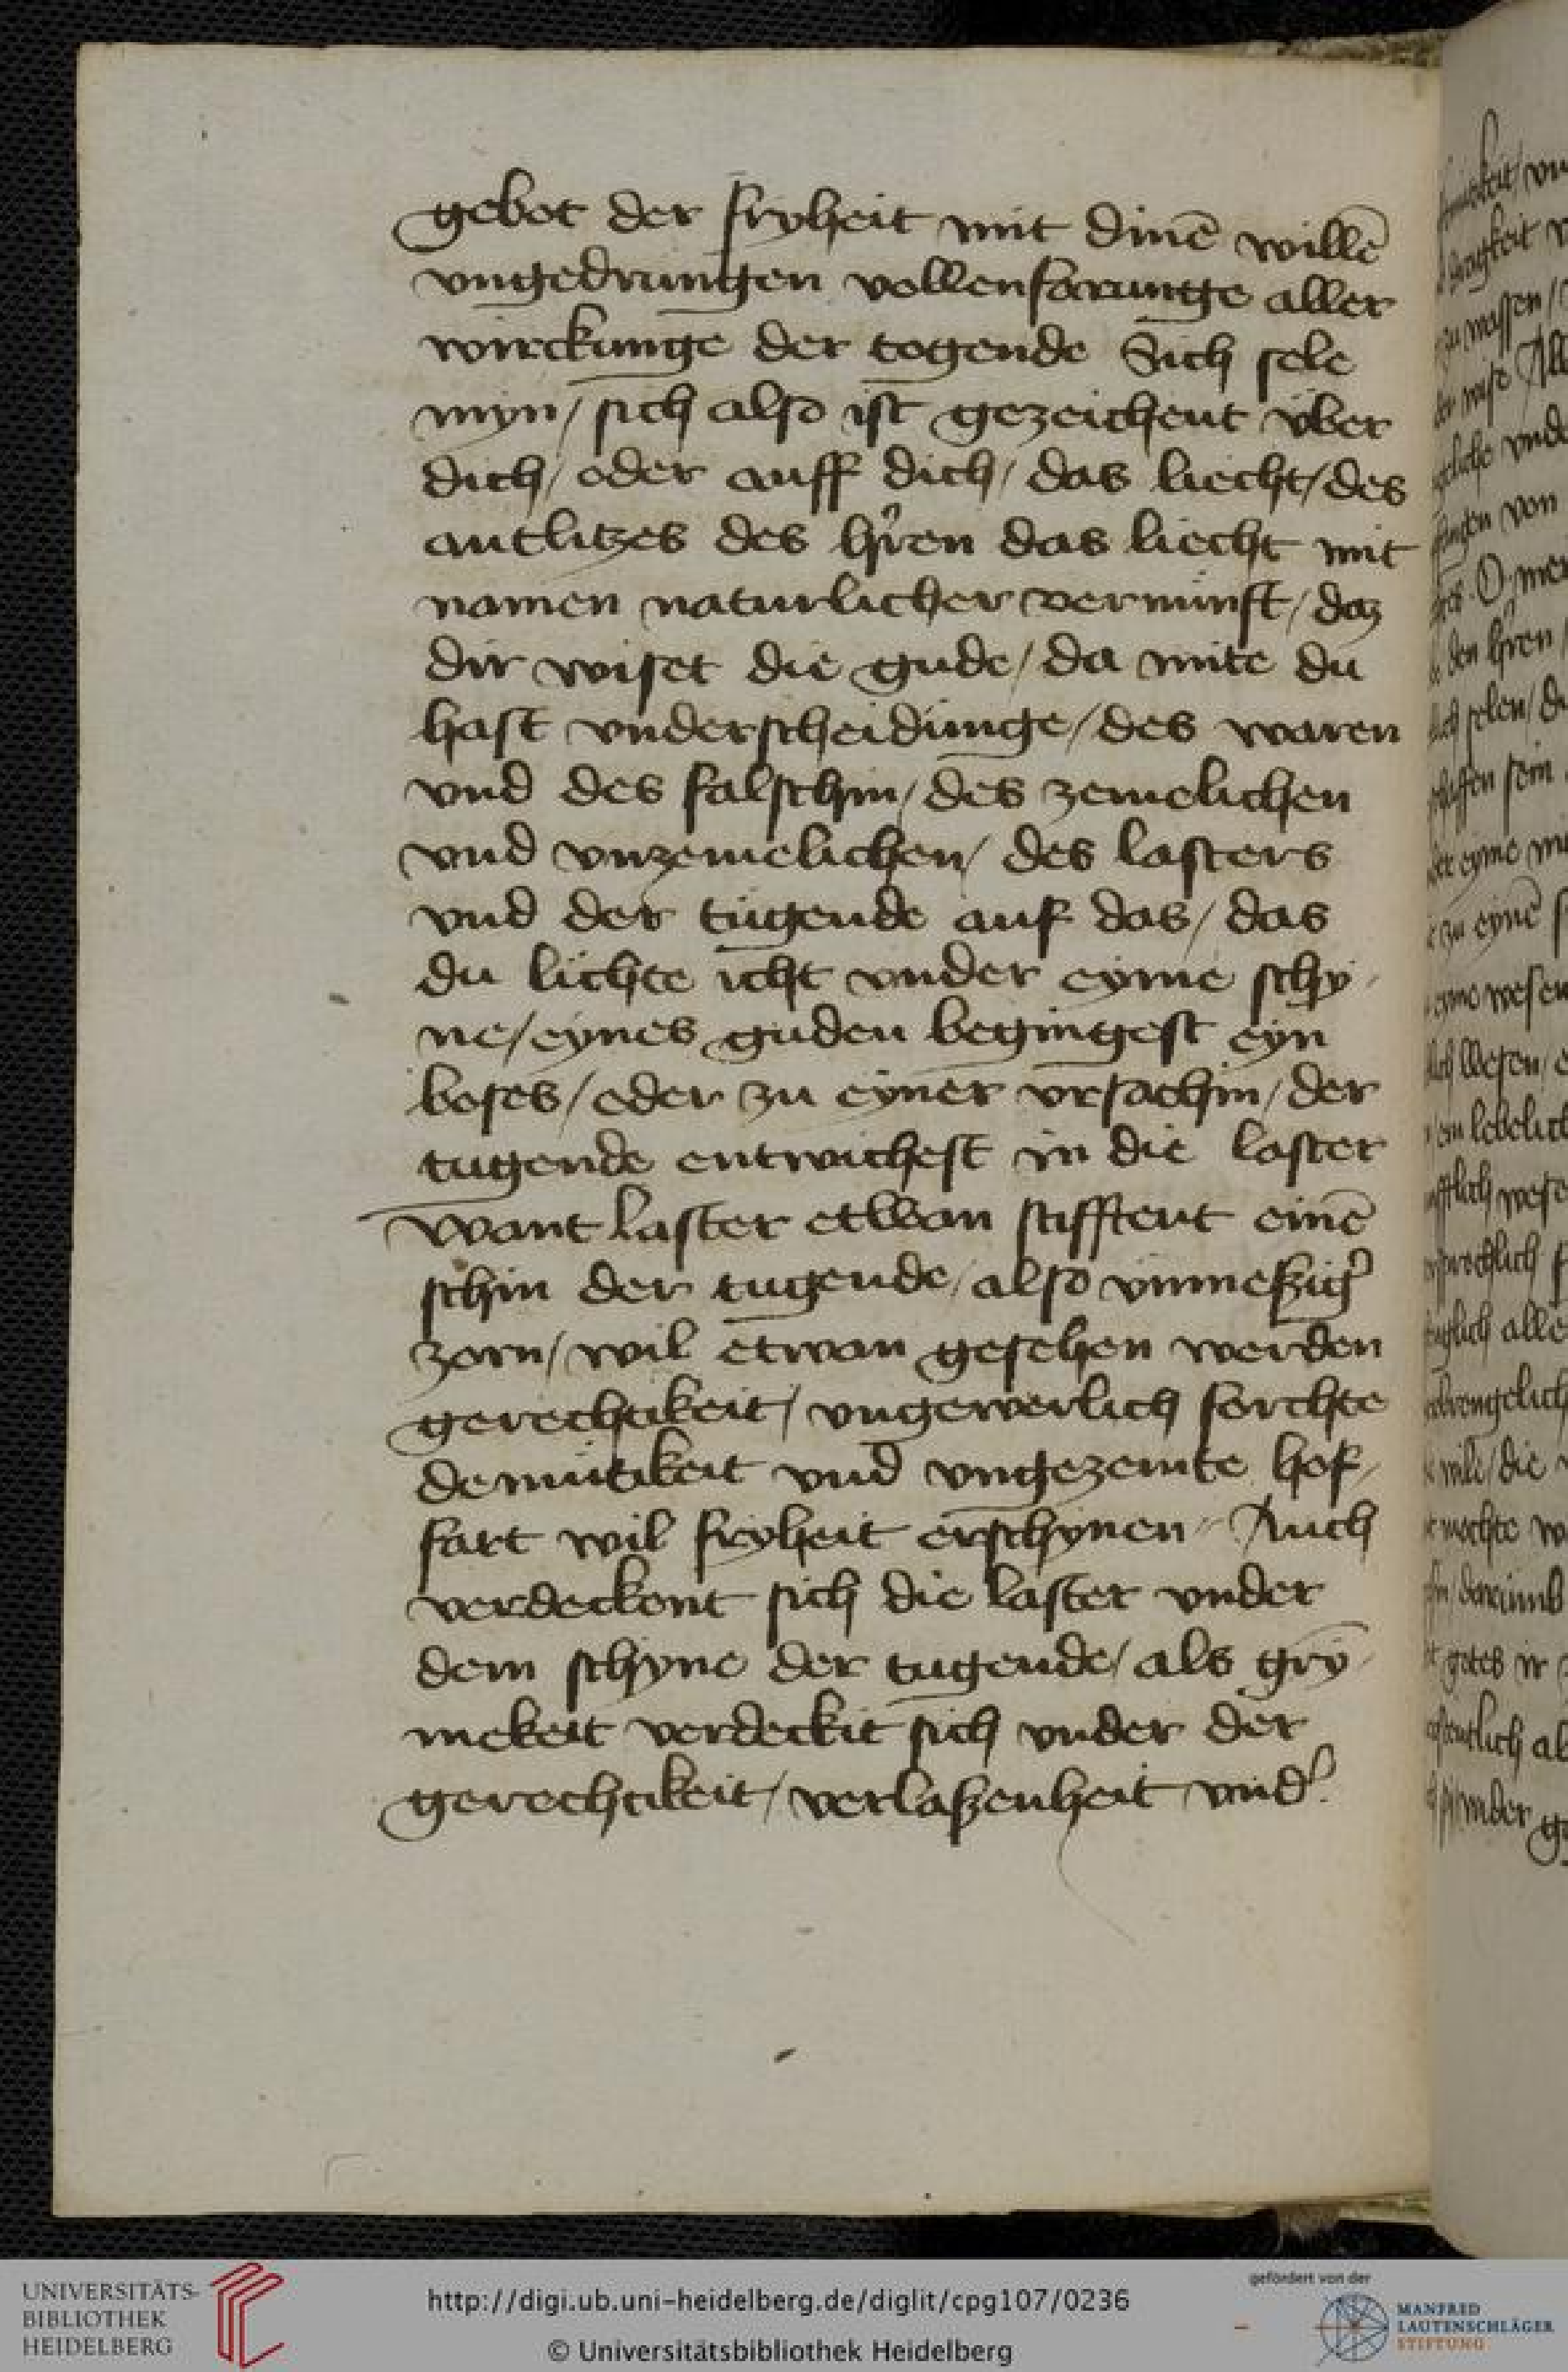 gebot der fryheit mit dinē willē
vngedrungen vollenfarunge aller
wirckunge der togende Sich sele
myn / sich also ist gezeichent vber
dich / oder auff dich / das liecht / des
antlitzes des hr̄en das liecht mit
namen naturlicher vernunft / daz
dir wiset die gude / da mite du
hast vnderscheidunge / des waren
vnd des falschin / des zemelichen
vnd vnzemelichen / des lasters
vnd der tugende auf das / das
du lichte icht vnder eyme schy-
ne / eynes guden begingest eyn
boses / oder zu eyner vrsachin / der
tugende entwichest in die laster
Want laster etwan stifftent einē
schin der tugende / also vnmeßig̾
zorn / wil etwan gesehen werden
gerechtikeit / vngewerlich forchte
demutikeit vnd vngezemte hof-
fart wil fryheit erschynen / Auch
verdeckent sich die laster vnder
dem schyne der tugende / als gry-
mekeit verdeckit sich vnder der
gerechtikeit / verlaßenheit vnd̾
UNIVERSITÄTS-
BIBLIOTHEK
HEIDELBERG
http://digi.ub.uni-heidelberg.de/diglit/cpg107/0236
© Universitätsbibliothek Heidelberg
gefördert von der
MANFRED
LAUTENSCHLÄGER
STIFTUNG